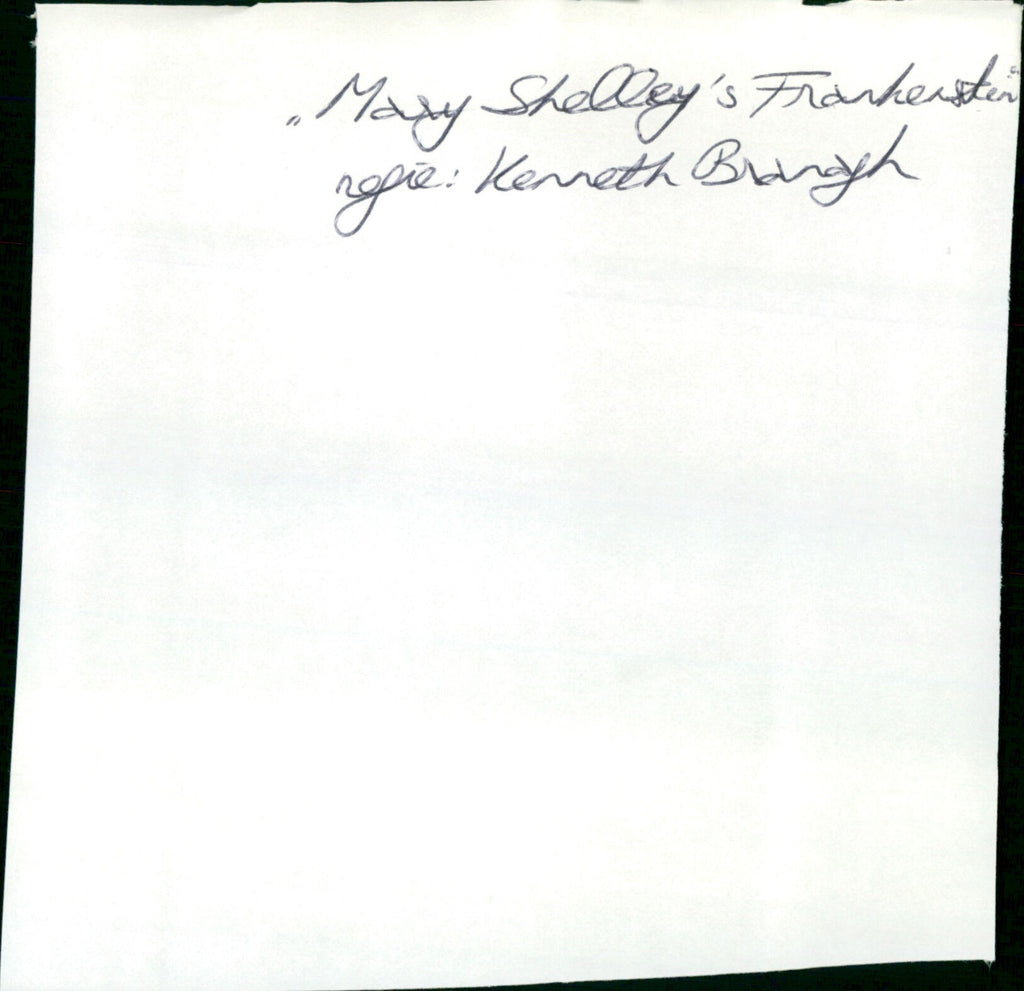 „Mary Shelley's Frankenstein"
regie: Kenneth Branagh